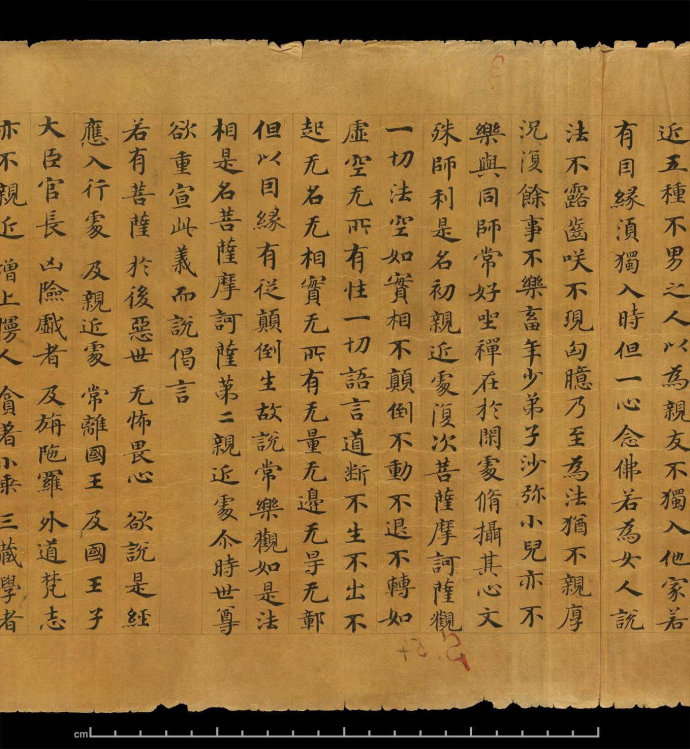 近五種不男之人以為親友不獨入他家若
有因緣湏獨入時但一心念佛若為女人說
法不露齒咲不現匈臆乃至為法猶不親厚
況復餘事不樂畜年少弟子沙弥小兒亦不
樂與同師常好坐禪在於閑處脩攝其心文
殊師利是名初親近處復次菩薩摩訶薩觀
一切法空如實相不顛倒不動不退不轉如
虛空无所有性一切語言道断不生不出不
起无名无相實无所有无量无邊无㝵无鄣
但以因緣有從顛倒生故說常樂觀如是法
相是名菩薩摩訶薩第二親近處尒時世尊
欲重宣此義而說偈言
若有菩薩 於後惡世 无怖畏心 欲說是經
應入行處 及親近處 常離國王 及國王子
大臣官長 凶險戲者 及旃陁羅 外道梵志
亦不親近 增上慢人 貪著小乘 三藏學者
cm